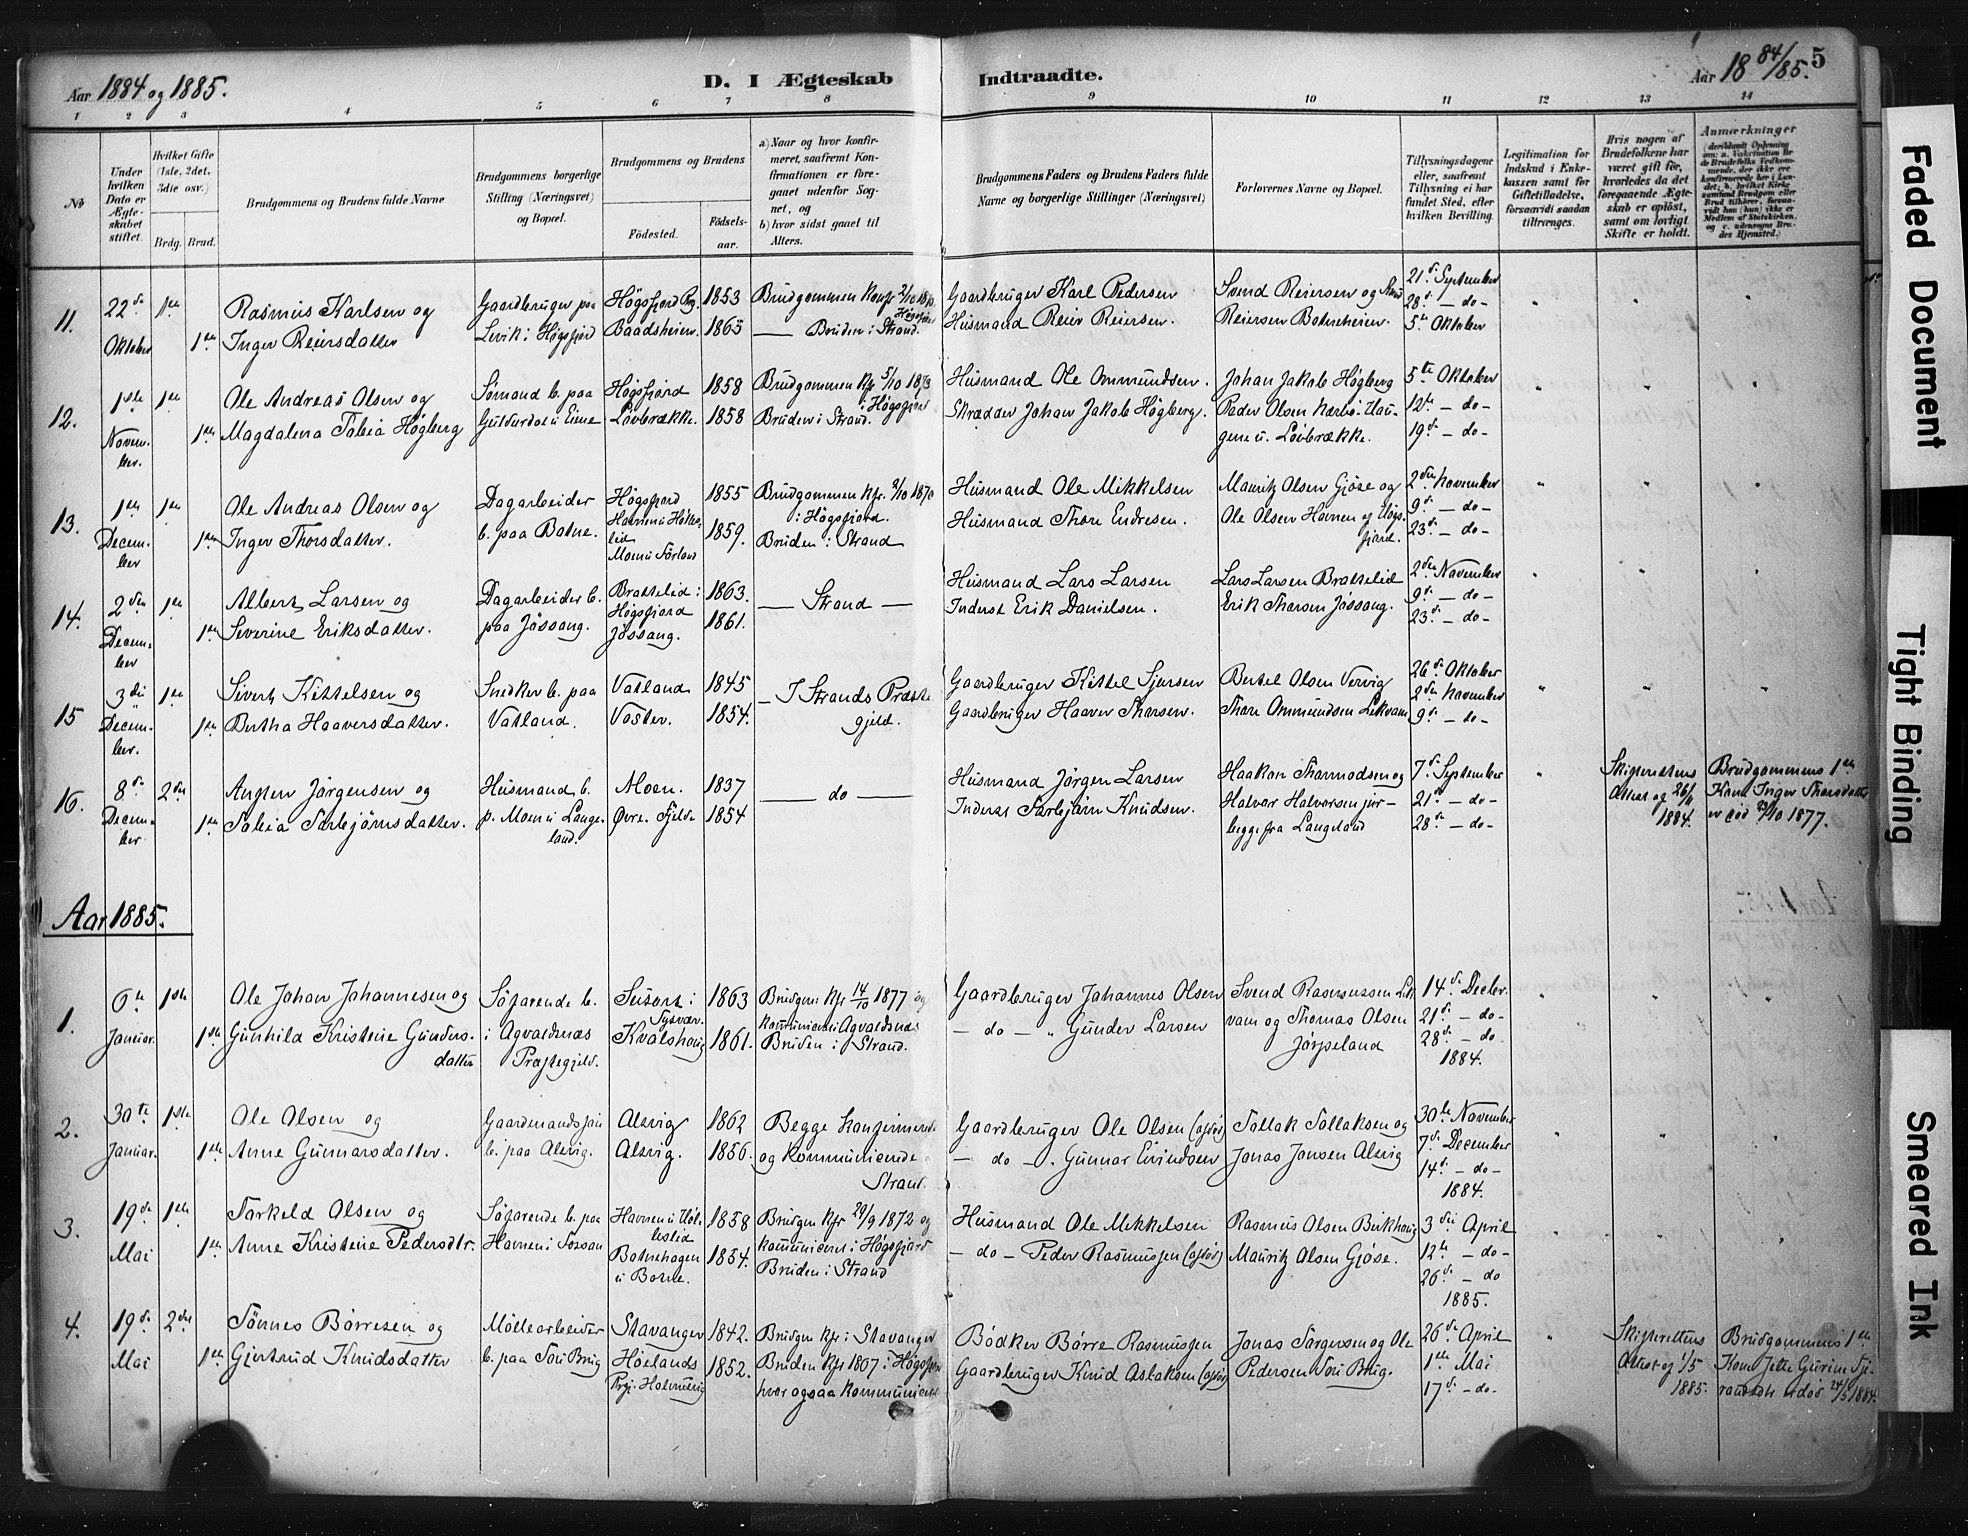 Aar 1884 og 1885.
D. I Ægteskab
Indtraadte.
Aar 1884/85. 5
1 2 3 4 5 6 7 8 9 10 11 12 13 14
No
Under hvilken Dato er Ægteskabet stiftet.
Hvilket Gifte (1ste, 2det, 3die osv.)
Brdg. Brud.
Brudgommens og Brudens fulde Navne
Brudgommens borgerlige Stilling (Næringsvei) og Bopæl.
Brudgommens og Brudens
Fødested. Fødselsaar.
a) Naar og hvor konfirmeret, saafremt Konfirmationen er foregaaet udenfor Sognet, og
b) hvor sidst gaaet til Alters.
Brudgommens Faders og Brudens Faders fulde Navne og borgerlige Stillinger (Næringsvei)
Forlovernes Navne og Bopæl.
Tillysningsdagene eller, saafremt Tillysning ei har fundet Sted, efter hvilken Bevilling.
Legitimation for Indskud i Enkekassen samt for Giftetilladelse, forsaavidt saadan tiltrænges.
Hvis nogen af Brudefolkene har været gift før, hvorledes da det foregaaende Ægteskab er opløst, samt om lovligt Skifte er holdt.
Anmærkninger
11. 22de Oktober 1ste 1ste
Rasmus Karlsen og
Inger Reiersdatter
Gaardbruger paa
Levik i Høgsfjord
Høgsfjord Prg. 1853
Baadsheien 1865
Brudgommen Konfr 2/10 1870 Høgsfjord
— Bruden i Strand.
Gaardbruger Karl Pedersen
Husmand Reier Reiersen.
Svend Reiersen og
Reiersen Botneheien.
21de September
28de — do —
5te Oktober
12. 1ste November 1ste 1ste
Ole Andreas Olsen og
Magdalena Tobia Høgberg
Sømand b. paa
Høgsfjord 1858
Løvbrække. 1858
Brudgommen Kfr 5/10 1873
i Høgsfjord
Bruden i Strand.
Husmand Ole Ommundsen.
Skrædder Johan Jakob Høgberg.
Johan Jakob Høgberg
Peder Olsen Nærbø Haugene u. Løvbrække.
5te Oktober
12te — do —
19de — do —
13. 1ste December 1ste 1ste
Ole Andreas Olsen og
Inger Thorsdatter.
Dagarbeider
b. paa Botne.
Høgsfjord 1855
Moen u. Førland 1859.
Brudgommen Kfr. 2/10 1870
i Høgsfjord.
Bruden i Strand
Husmand Ole Mikkelsen
Husmand Thore Endresen.
Mauritz Olsen Gjøse og
Ole Olsen Havnen af Høgsfjord.
2den November
9de — do —
23de — do —
14. 2den December 1ste 1ste
Albert Larsen og
Severine Eriksdatter.
Dagarbeider b.
paa Jøssang.
Brattelid i
Høgsfjord 1863.
Jøssang. 1861.
— Strand —
Husmand Lars Larsen
Inderst Erik Danielsen.
Lars Larsen Brattelid
Erik Thorsen Jøssang.
2den November
9de — do —
23de — do —
15 3die December 1ste 1ste
Sivert Kittelsen og
Bertha Haaversdatter.
Snedker b. paa
Vatland.
Vatland 1845
Voster. 1854.
— I Strands Præstegjeld.
Gaardbruger Kittel Sjursen
Gaardbruger Haaver Thorsen.
Bertel Olsen Vervig
Thore Ommundsen Lekvam
26de Oktober
2den November
9de — do —
16. 8de December 2det 1ste
Austen Jørgensen og
Tobia Torbjørnsdatter.
Husmand b.
p. Moen u Langeland.
Moen. 1837
Øvre Fjelde 1854
— do —
Husmand Jørgen Larsen
Inderst Torbjørn Knudsen.
Haakon Thormodsen og
Halvor Halvorsen
begge fra Langeland
7de September
21de — do —
28de — do —
Skifterettens
Attest og 26/11
1884.
Brudgommens 1ste
Kone Inger Thorsdatter
er død 29/10 1877.
Aar 1885.
1. 6te Januar. 1ste 1ste
Ole Johan Johannesen og
Gunhild Kristine Gundersdatter
Søfarende b.
i Agvaldsnæs
Præstegjeld.
Susort i
Tysvær. 1863
Kvalshaug 1861.
Brudgm: Kfr 14/10 1877 og
kommunicens i Agvaldsnæs
Bruden i Strand.
Gaardbruger Johannes Olsen
— do — " Gunder Larsen
Svend Rasmussen Lekvam og Thomas Olsen
Jørpeland
14de Decbr.
21de — do —
28de — do
1884.
2. 30te Januar. 1ste 1ste
Ole Olsen og
Anne Gunnarsdatter.
Gaardmandssøn
b. paa Alsvig.
Alsvig 1862
Alsvig. 1856.
Begge Konfirmerede
og Kommunicende
Strand.
Gaardbruger Ole Olsen (afdød)
— do —. Gunnar Eivindsen
Tollak Tollaksen og
Jonas Jonsen Alsvig
30te November
7de December
14de — do —
1884.
3. 19de Mai 1ste 1ste
Torkeld Olsen og
Anne Kristine Pedersdtr.
Søfarende b. paa
Havnen i Forsan
Havnen u Høllesli 1858
Botnehagen
u Botne. 1854.
Brudgm Kfr 29/9 1872 og
kommunicens i Høgsfjord
Bruden i Strand
Husmand Ole Mikkelsen
— do — Peder Rasmussen (afdød)
Rasmus Olsen Birkhaug
Mauritz Olsen Gjøse.
3die April
12te — do —
26de — do
1885.
4. 19de Mai 2det 1ste
Tønnes Børresen og
Gjertrud Knudsdatter
Møllearbeider
b. paa Tou Brug
Stavanger 1842.
Høilands
Prgj. 1852.
Brudgm Kfr i Stavanger
Bruden Kfr 1867 i Høgsfjord
hvor ogsaa kommunicens
Bødker Børre Rasmussen
Gaardbruger Knud Aslaksen (afdød)
Jonas Torgersen og Ole
Pedersen Tou Brug.
26de April
1ste Mai
17de — do —
Skifterettens
Attest af 1/5
1885.
Brudgommens 1ste
Kone Jette Gurine
er død 24/5 1884.
Faded Document
Tight Binding
Smeared Ink